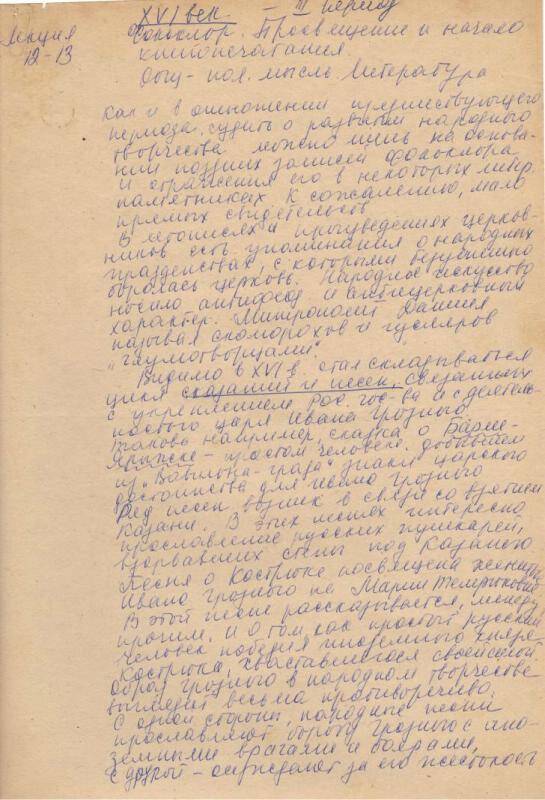 XVI век. – III период
Лекция 12-13
Фольклор. Просвещение и начало
книгопечатания.
Общ-пол. мысль. Литература
Как и в отношении предшествующего
периода, судить о развитии народного
творчества можно лишь на основа-
нии поздних записей фольклора
и отражения его в некоторых литер.
памятниках. К сожалению, мало
прямых свидетельств.
В летописях и произведениях церков-
ников есть упоминания о народных
празденствах, с которыми безуспешно
боролась церковь. Народное искусство
носило антифеод. и антицерковный
характер. Митрополит Даниил
называл скоморохов и гусляров
"глумотворцами".
Видимо в XVI в. стал складываться
цикл сказаний и песен, связанных
с укреплением Рос. гос-ва и с деятель-
ностью царя Ивана Грозного
Такова например, сказка о Барме-
Ярыжке – простом человеке, добывшем
из "Вавилона-града" знаки царского
достоинства для Ивана Грозного
Ряд песен возник в связи со взятием
Казани. В этих песнях интересно
прославление русских пушкарей,
взорвавших стены под Казанью
Песня о Кострюке посвящена женитьбе
Ивана Грозного на Марии Темрюковне
В этой песне рассказывается, между
прочим, и о том, как простой русский
человек победил иноземного князя
Кострюка, хваставшегося своей силой.
Образ Грозного в народном творчестве
выглядит весьма противоречиво.
С одной стороны, народные песни
прославляют борьбу Грозного с ино-
земными врагами и боярами,
с другой – осуждают за его жестокость